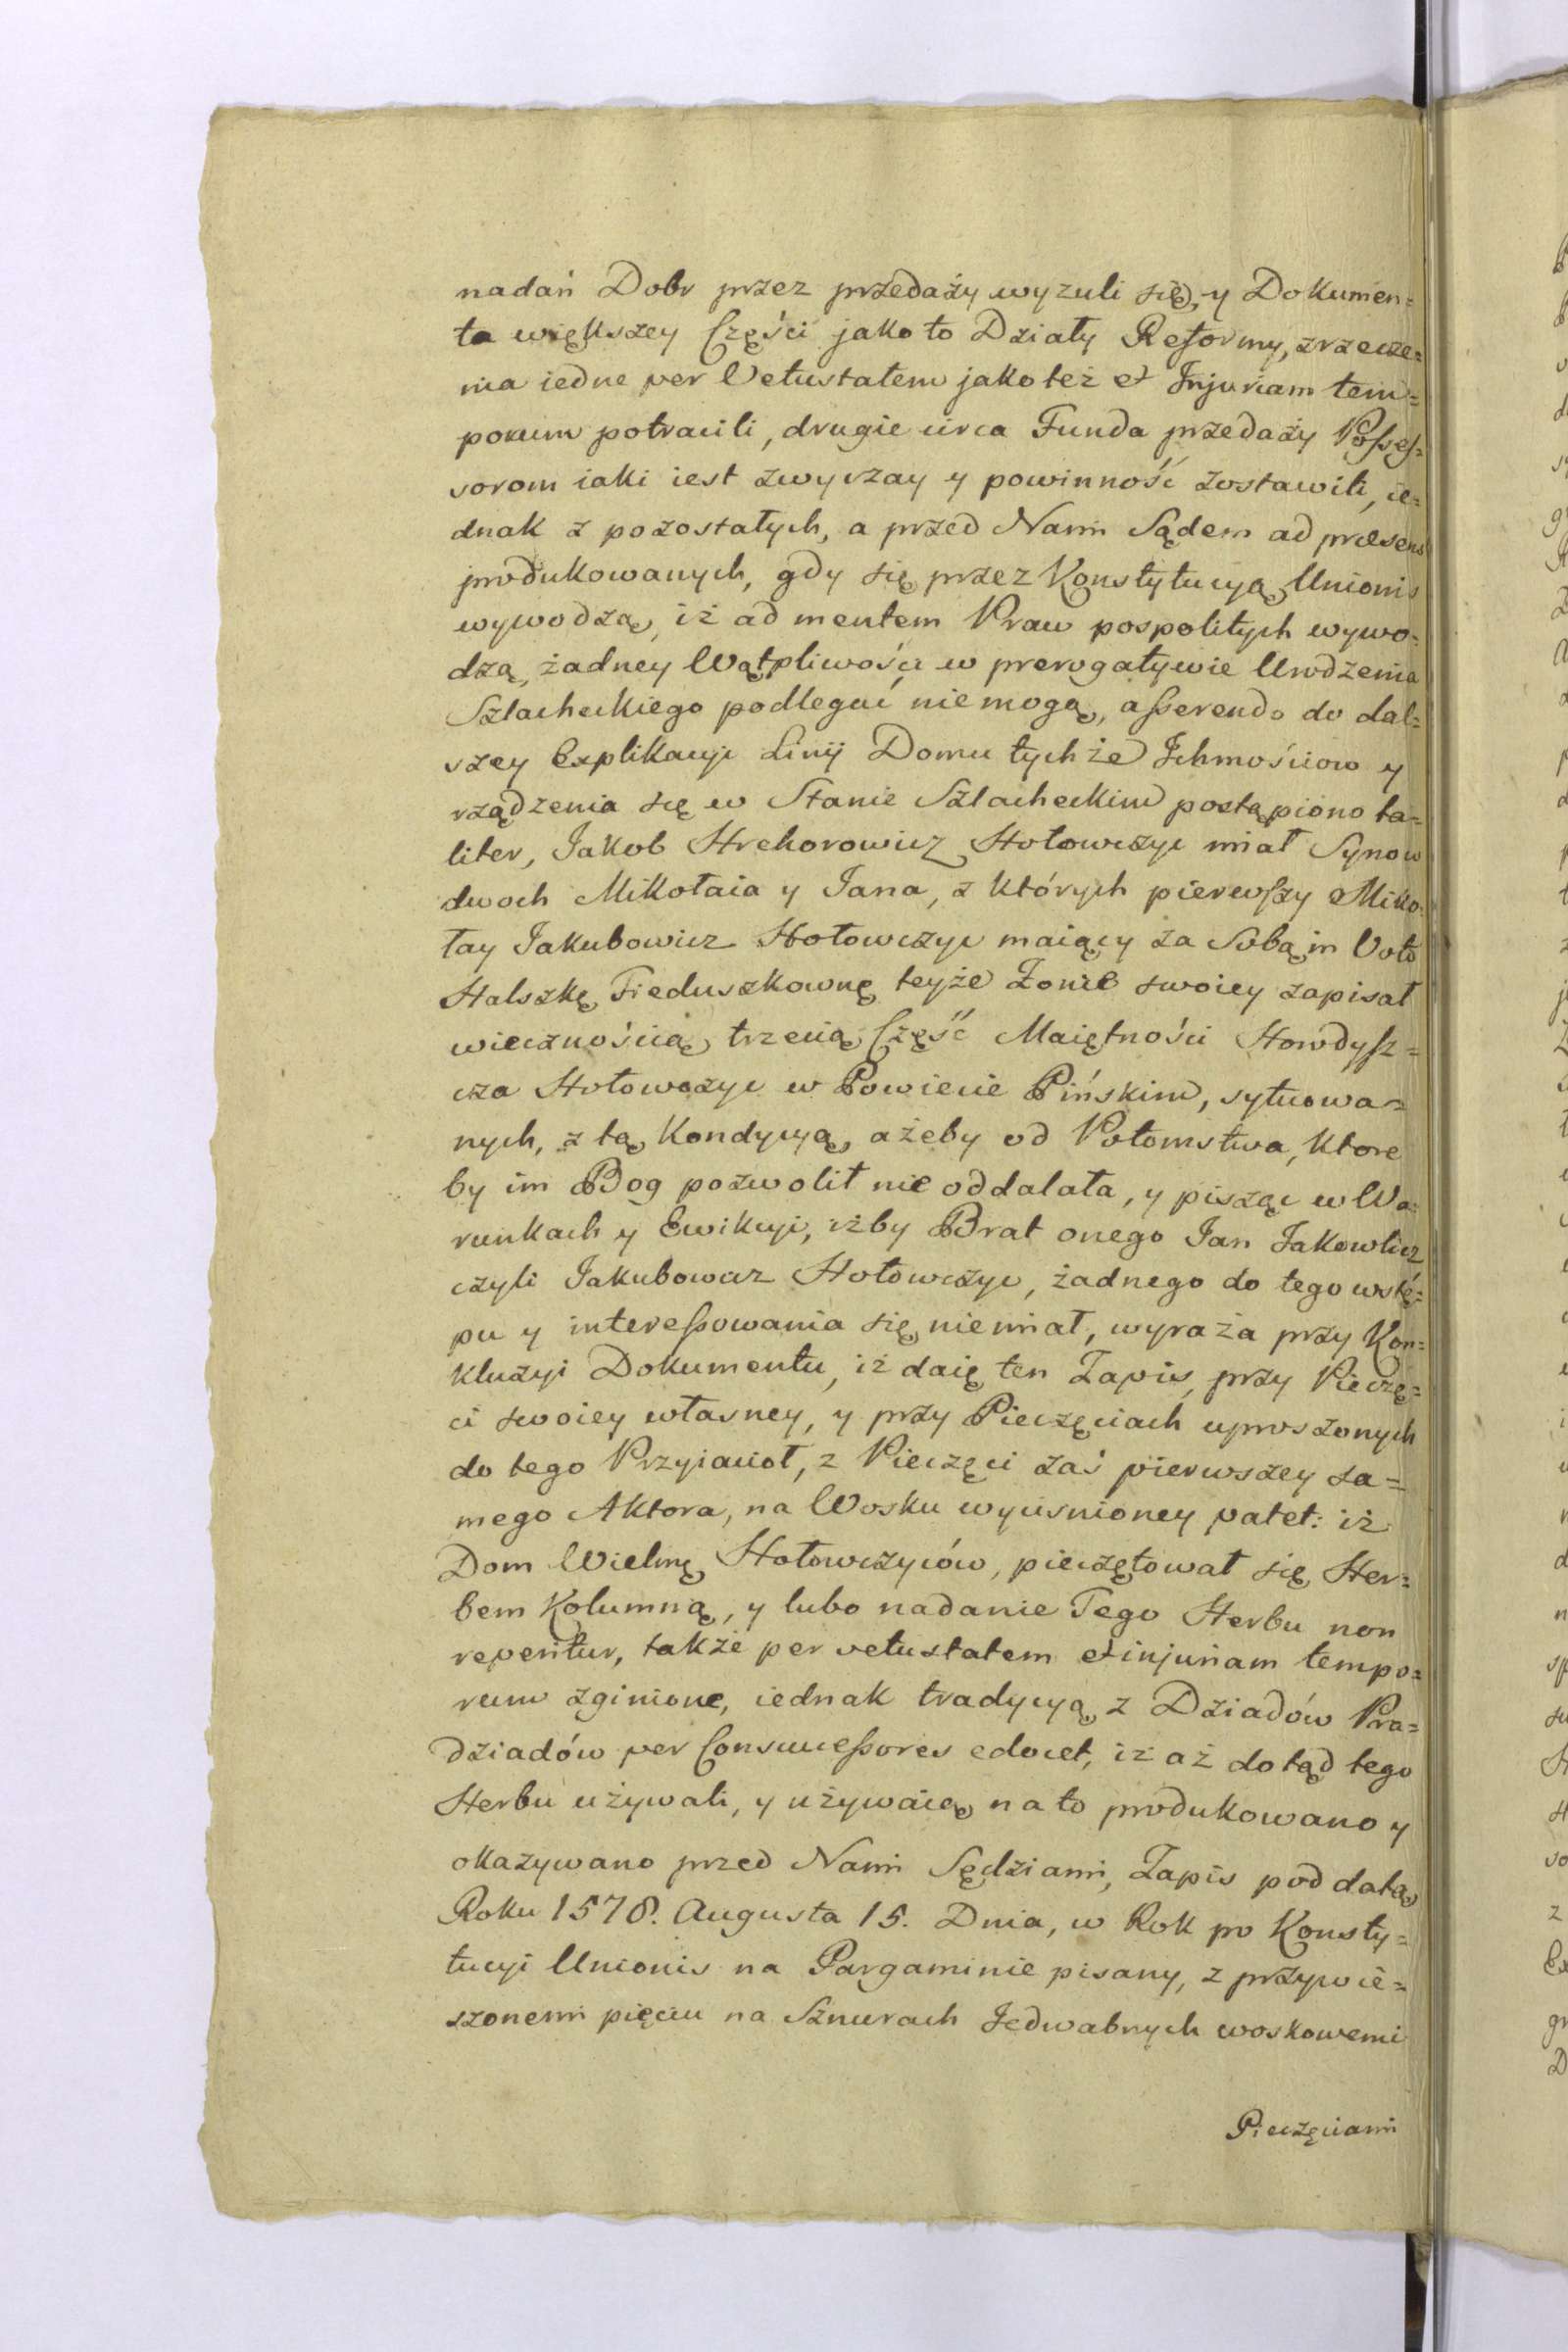 nadań Dobr przez przedaży wyzuli się, y Dokumen=
ta większey Części jako to Działy Reformy, zrzecze=
nia iedne per Vetustatem jako też et Injuriam tem=
porum potracili, drugie circa Funda przedaży Possess=
sorom iaki iest zwyczay y powinność zostawili, ie=
dnak z pozostałych, a przed Nami Sądem ad præsens
produkowanych, gdy się przez Konstytucyą Unionis
wywodzą, iż ad mentem Praw pospolitych wywo=
dzą, żadney Wątpliwości w prerogatywie Urodzenia
Szlacheckiego podlegać nie mogą, asserendo do dal=
szey Explikacyi Linij Domu tychże Ichmościow y
rządzenia się w Stanie Szlacheckim postąpiono ta=
liter, Jakob Hrehorowicz Hołowczyc miał Synow
dwoch Mikołaia y Jana, z których pierewszy Miko=
łay Jakubowicz Hołowczyc maiący za Sobą in Voto
Halszkę Fieduszkownę teyże Żonie swoiey zapisał
wiecznością trzecią Część Maiętności Howdysz=
cza Hołowczyc w Powiecie Pińskim, sytuowa=
nych, z tą Kondycyą, ażeby od Potomstwa, ktore
by im Bog pozwolił nie oddalała, y pisząc w Wa=
runkach y Ewikcyi, iżby Brat onego Jan Jakowlicz
czyli Jakubowicz Hołowczyc, żadnego do tego wstę=
pu y interessowania się nie miał, wyraża przy Kon=
kluzyi Dokumentu, iż daię ten Zapis przy Pieczę=
ci swoiey własney, y przy Pieczęciach uproszonych
do tego Przyiacioł, z Pieczęci zaś pierwszey sa=
mego Aktora, na Wosku wycisnioney patet: iż
Dom Wielmę Hołowczyców, pieczętował się Her=
bem Kolumną, y lubo nadanie Tego Herbu non
reperitur, także per vetustatem et injuriam tempo=
rum zginione, iednak tradycyą z Dziadów Pra=
dziadów per Consuccessores edocet, iż aż dotąd tego
Herbu używali, y używaią, na to produkowano y
okazywano przed Nami Sędziami, Zapis pod datą
Roku 1578. Augusta 15. Dnia, w Rok po Konsty=
tucyi Unionis na Pargaminie pisany, z przywie=
szonemi pięciu na Sznurach Jedwabnych woskowemi
Pieczęciami